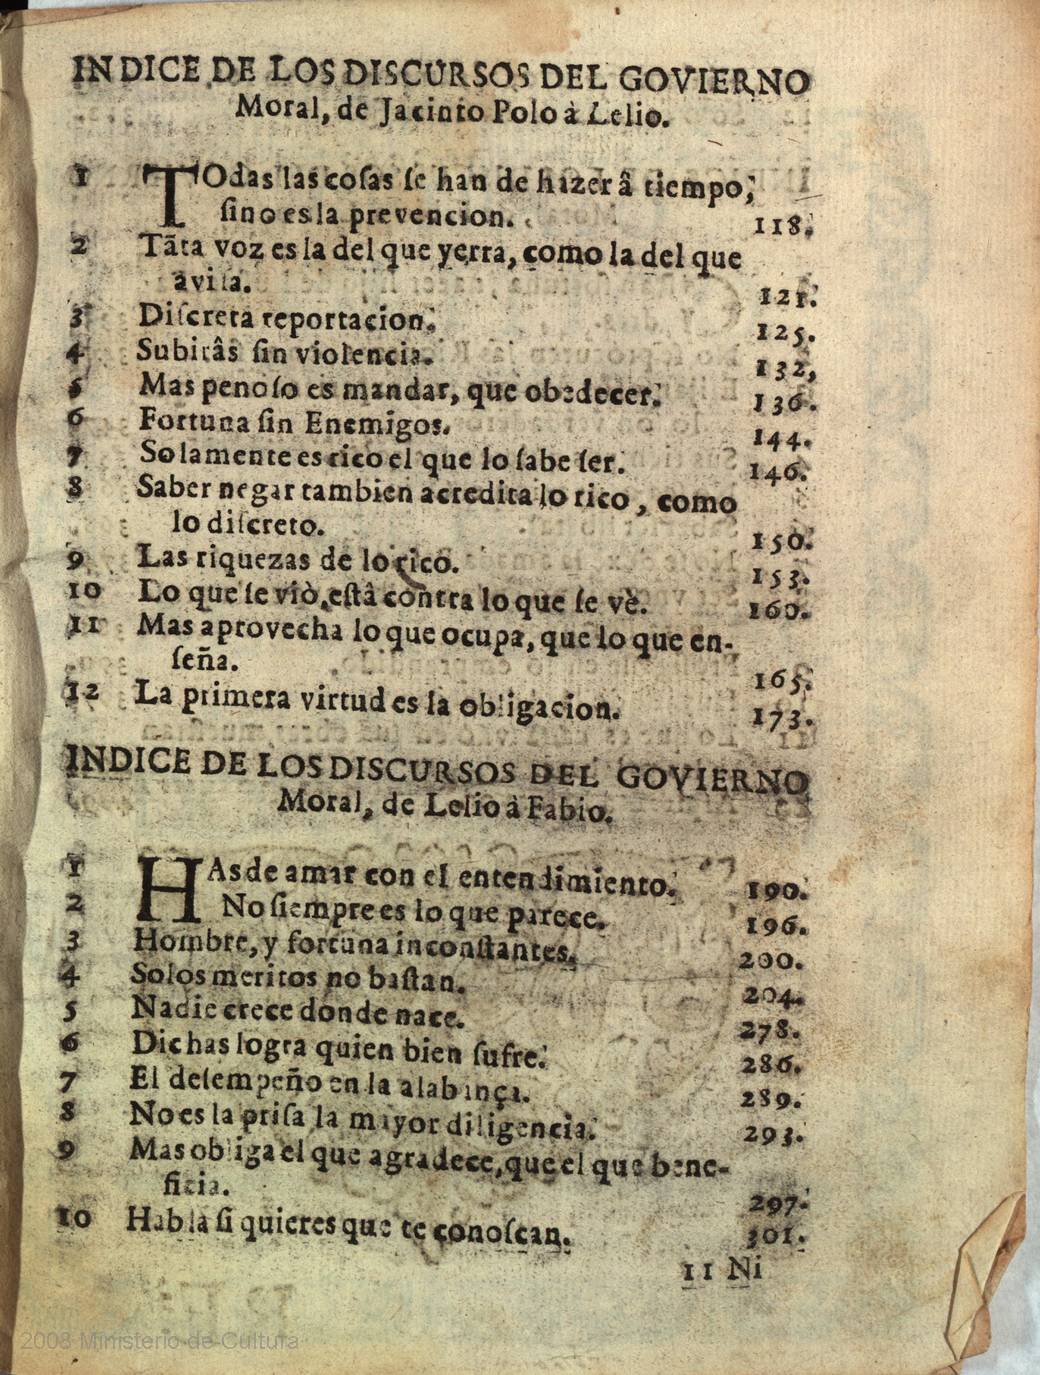 INDICE DE LOS DISCURSOS DEL GOVIERNO
Moral, de Jacinto Polo à Lelio.
1 TOdas las cosas se han de hazer â tiempo,
sino es la prevencion. 118.
2 Tãta voz es la del que yerra, como la del que
avisa. 121.
3 Discreta reportacion. 125.
4 Subirâs sin violencia. 132,
5 Mas penoso es mandar, que obedecer. 136.
6 Fortuna sin Enemigos. 144.
7 Solamente es rico el que lo sabe ser. 146.
8 Saber negar tambien acredita lo rico, como
lo discreto. 150.
9 Las riquezas de lo rico. 153.
10 Lo que se viò, està contra lo que se vè. 160.
11 Mas aprovecha lo que ocupa, que lo que en-
seña. 165.
12 La primera virtud es la obligacion. 173.
INDICE DE LOS DISCURSOS DEL GOVIERNO
Moral, de Lelio à Fabio.
1 HAs de amar con el entendimiento. 190.
2 No siempre es lo que parece. 196.
3 Hombre, y fortuna inconstantes. 200.
4 Solos meritos no bastan. 204.
5 Nadie crece donde nace. 278.
6 Dichas logra quien bien sufre. 286.
7 El desempeño en la alabança. 289.
8 No es la prisa la mayor diligencia. 293.
9 Mas obliga el que agradece, que el que bene-
ficia. 297.
10 Habla si quieres que te conoscan. 301.
11 Ni
2008 Ministerio de Cultura